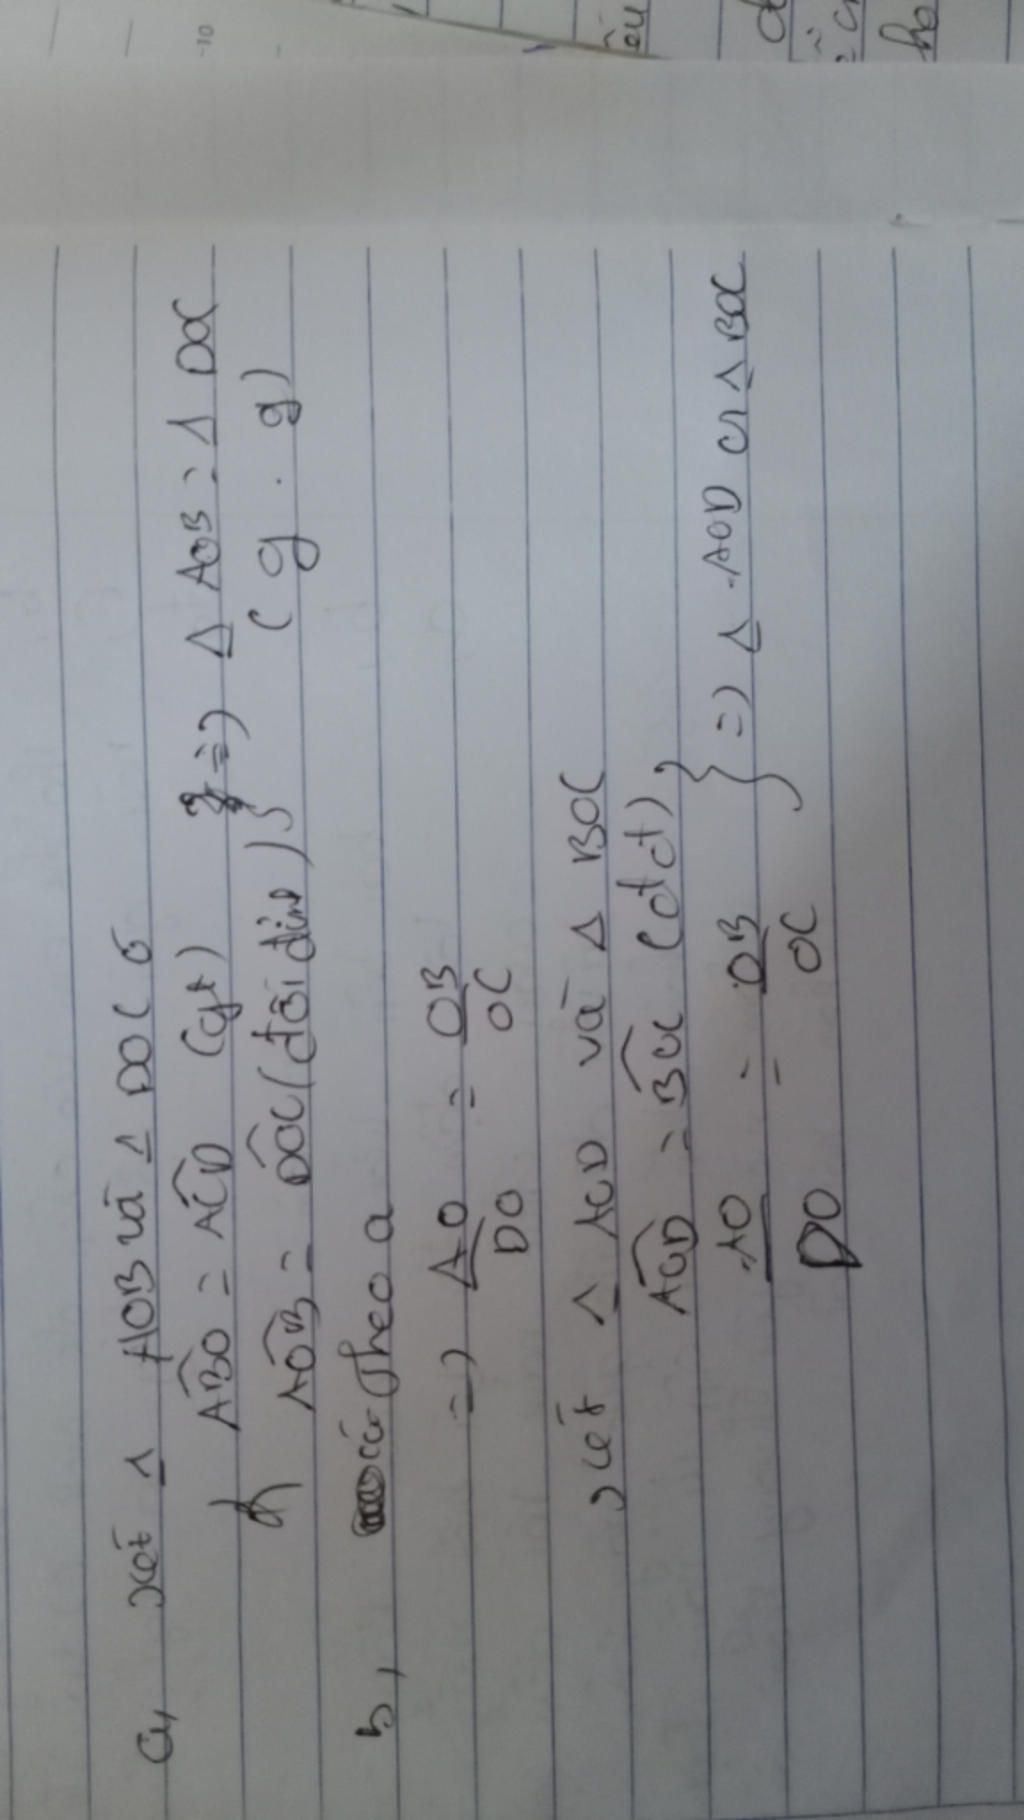 a, xét Δ AOB và Δ DOC có
ABO = ACD (gt) } => Δ AOB = Δ DOC
AOB = DOC (đối đỉnh) (g.g)
b, Theo a
=> AO/DO = OB/OC
xét Δ AOD và Δ BOC
AOD = BOC (đđ)
AO/DO = OB/OC } => Δ AOD ∽ Δ BOC